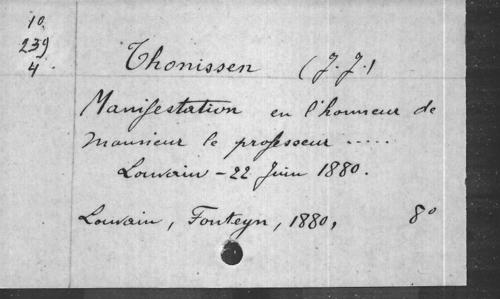 10
239
4
Thonissen (J. J.)
Manifestation en l'honneur de
monsieur le professeur .....
Louvain - 22 Juin 1880.
Louvain, Fonteyn, 1880, 8°